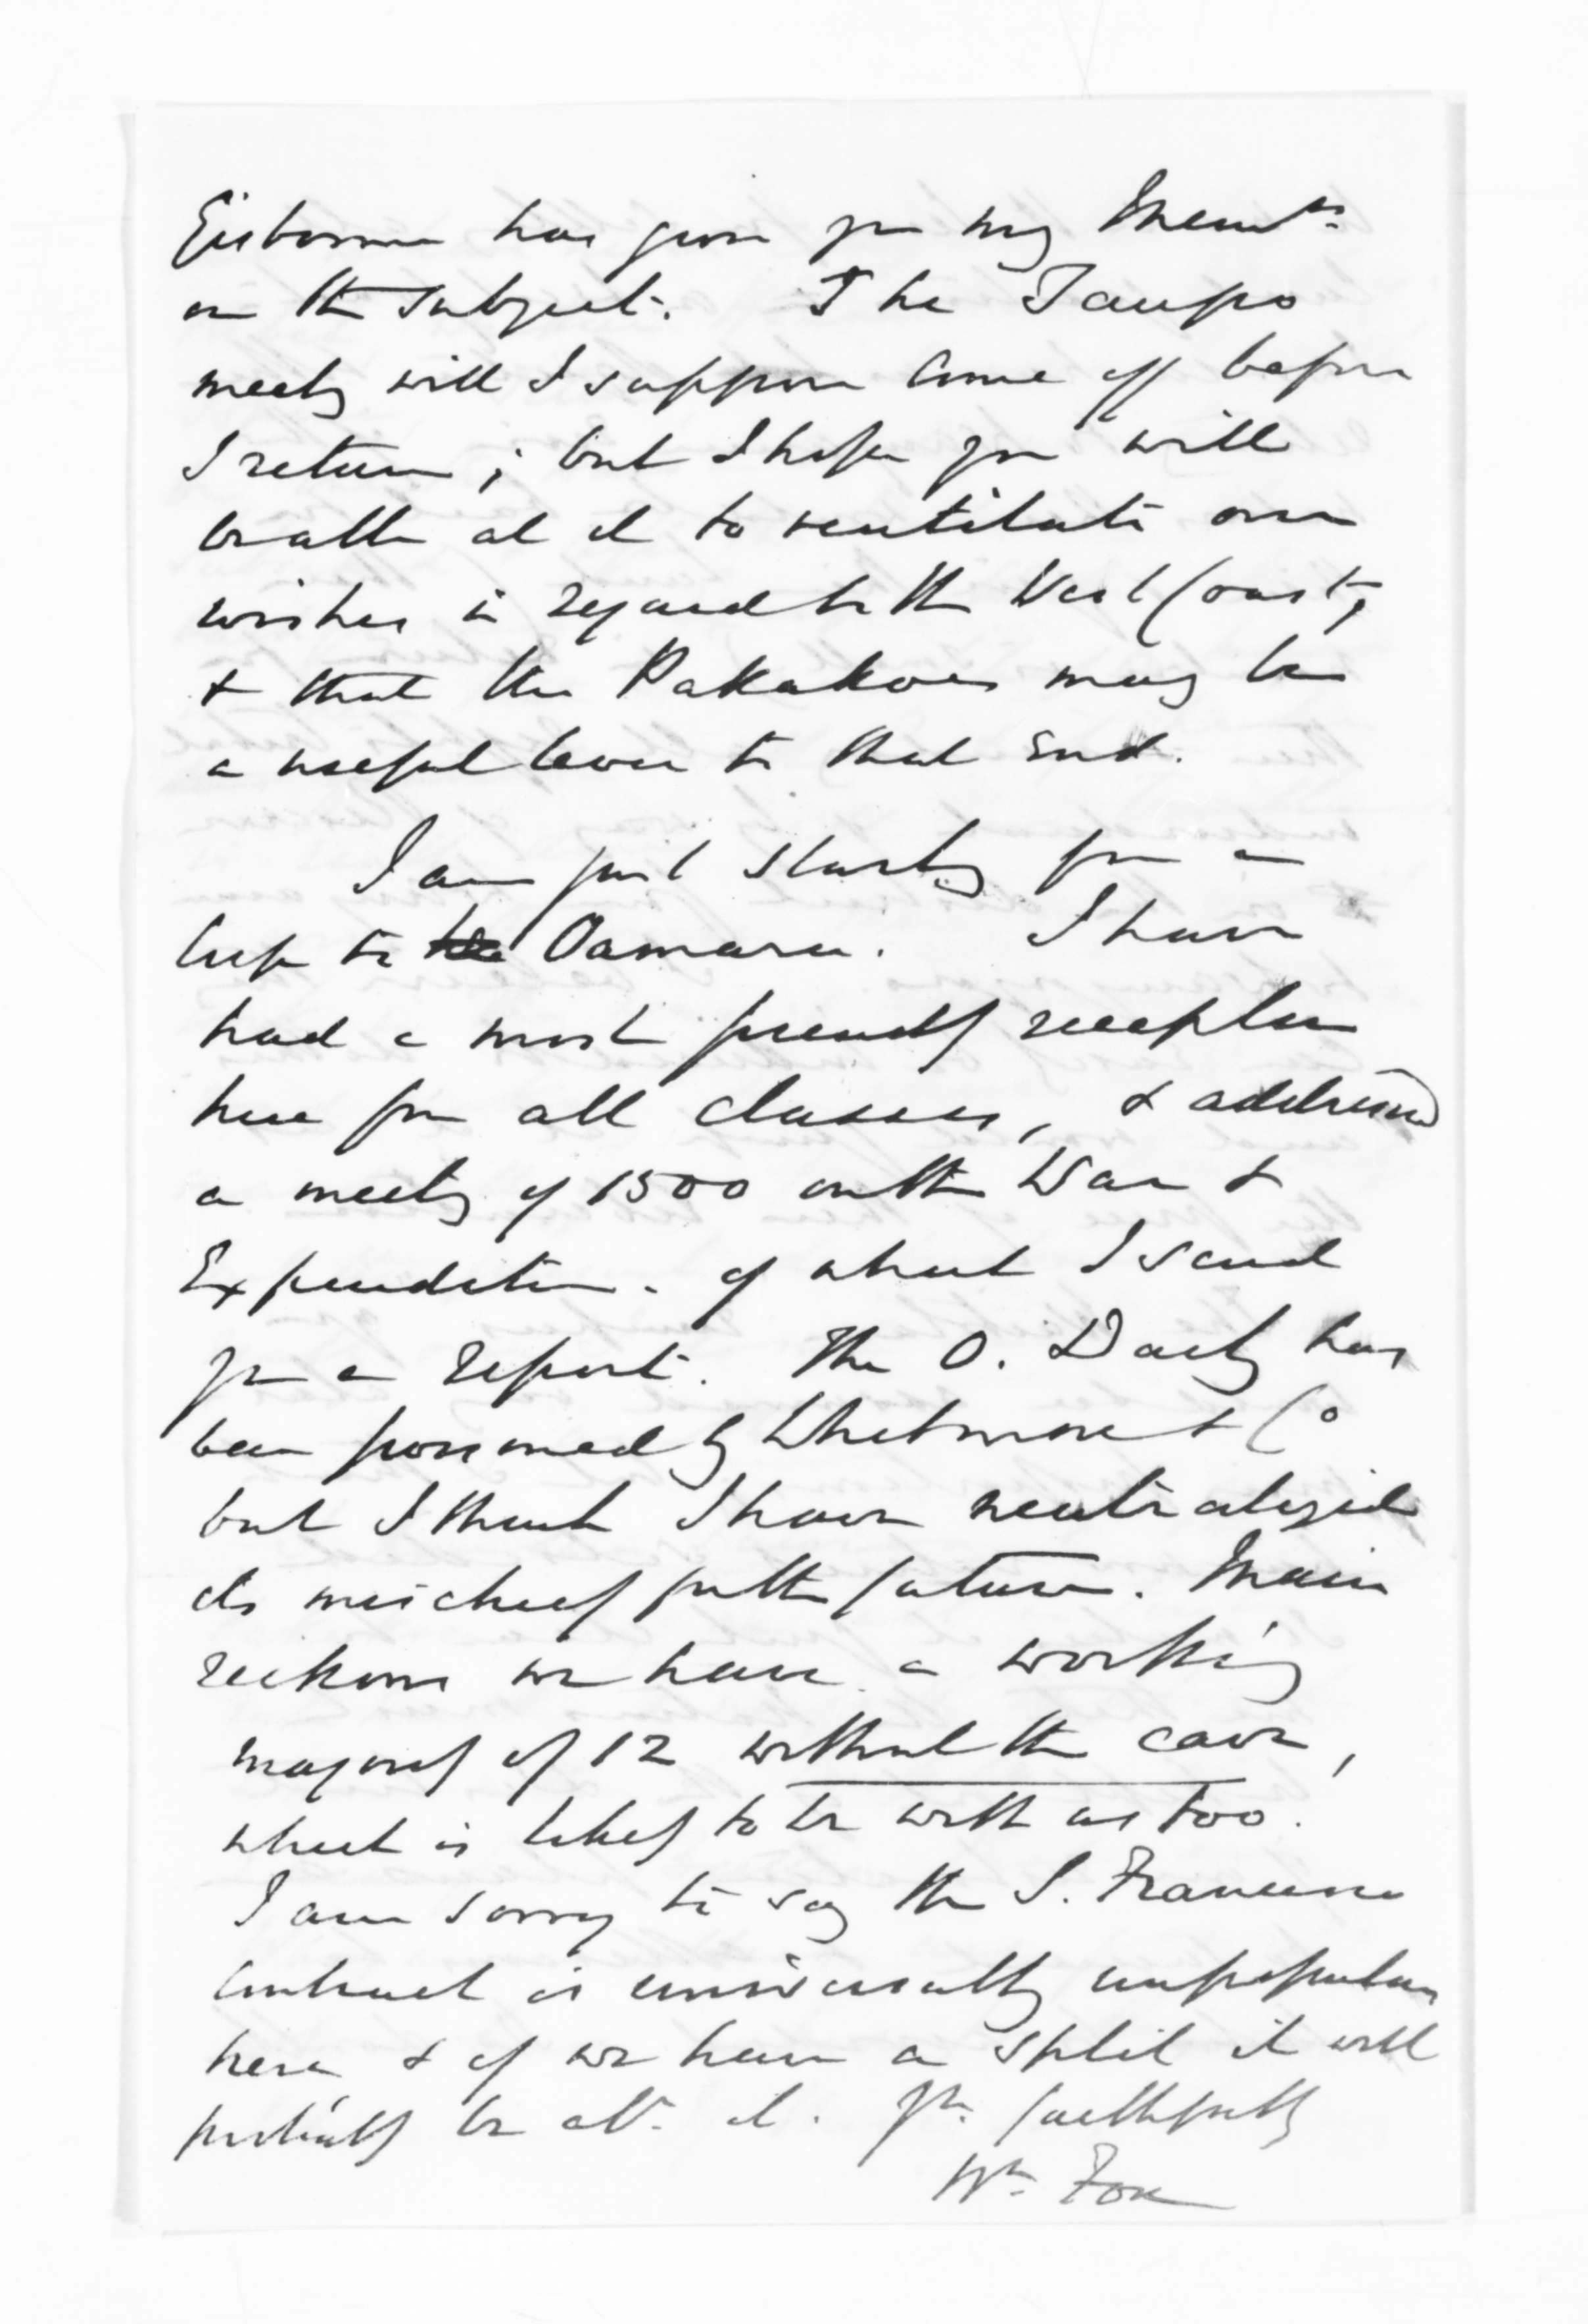 Gisborne has given you my Mem<sup>m</sup>
on the subject. The Taupo
meetg will I suppose come off before
I return; but I hope you will
be able at it to ventilate our
wishes in regard to the West Coast,
& that the Pakakohes may be
a useful lever to that end.
I am just startg for a
trip to Oamaru. I have
had a most friendly reception
here from all classes, & addressed
a meetg of 1500 on the War &
Expenditure - of which I send
you a report. The O. Daily has
been poisoned by Whitmore & Co
but I think I have neutralized
its mischief for the future. Main
reckons we have a working
majority of 12 without the cave,
which is likely to be with us too.
I am sorry to say the S. Francisco
contract is universally unpopular
here & if we have a split it will
probably be abt. it. Yrs. faithfully
Wm. Fox